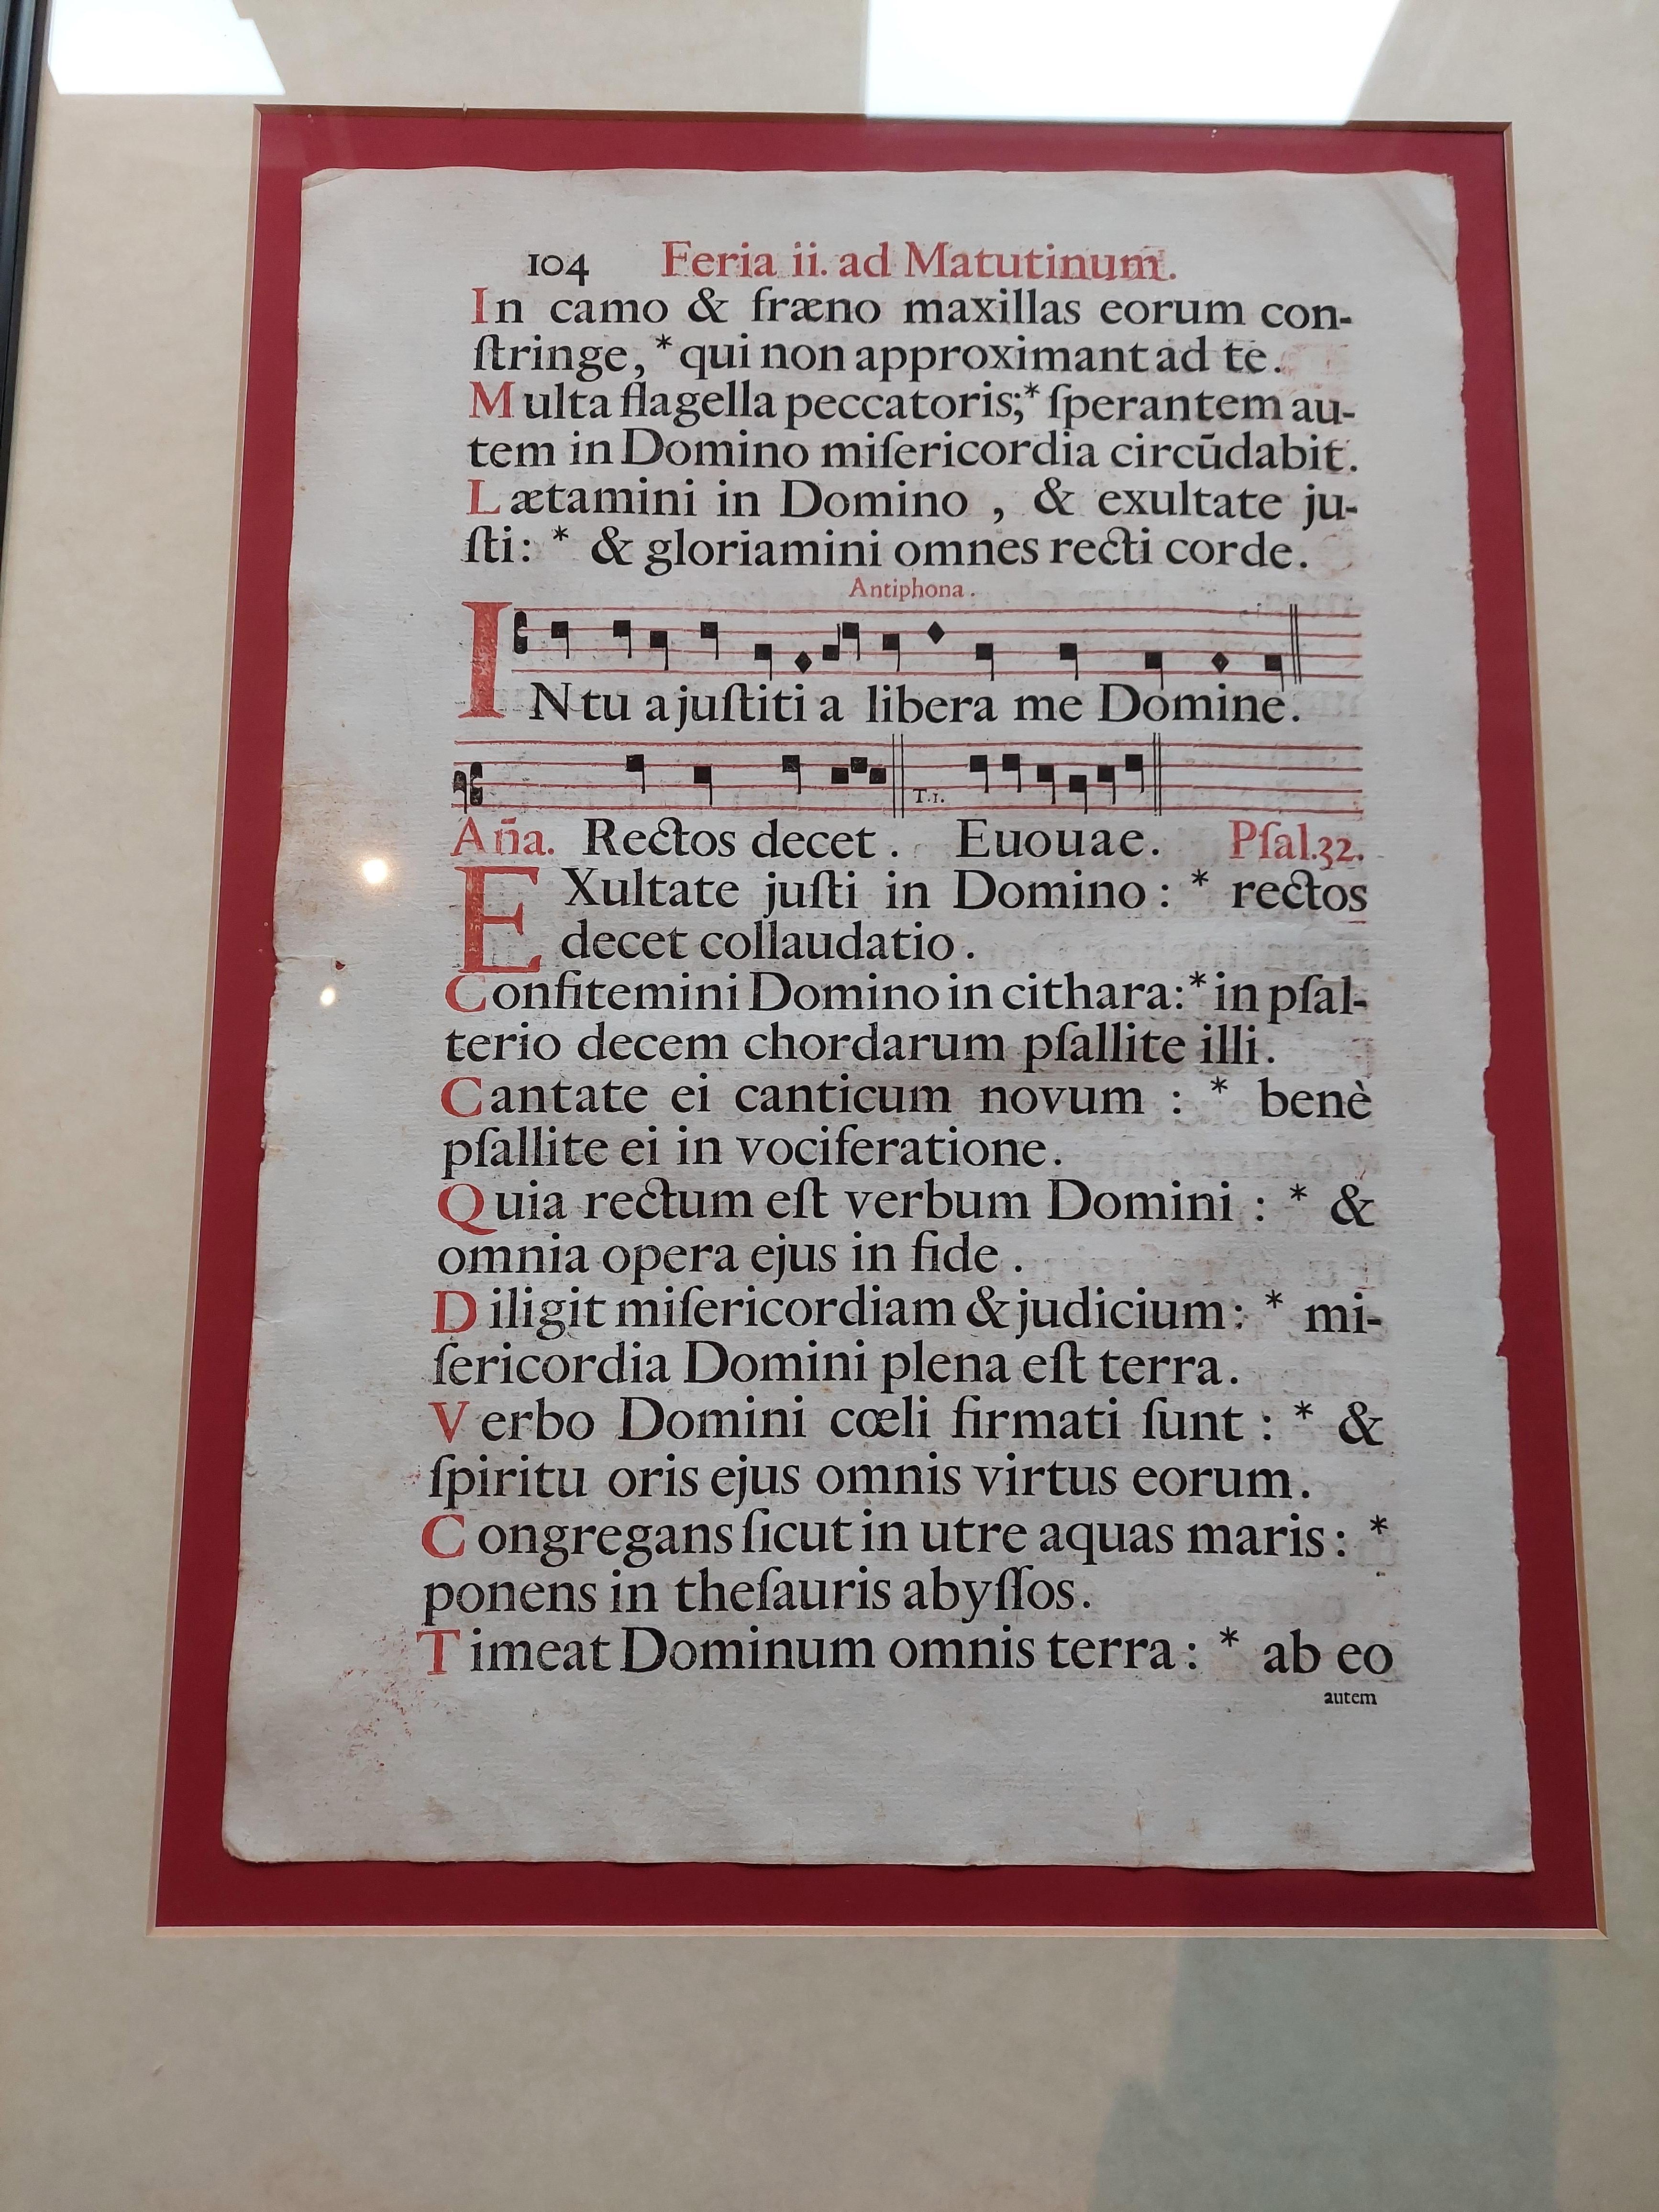 104 Feria ii. ad Matutinum.
In camo & fræno maxillas eorum con-
ſtringe, * qui non approximant ad te.
Multa flagella peccatoris;* ſperantem au-
tem in Domino miſericordia circūdabit.
Lætamini in Domino , & exultate ju-
ſti: * & gloriamini omnes recti corde.
Antiphona.
IN tu a juſtiti a libera me Domine.
T.1.
Aña. Rectos decet. Euouae. Pſal.32.
EXultate juſti in Domino : * rectos
decet collaudatio.
Confitemini Domino in cithara:* in pſal-
terio decem chordarum pſallite illi.
Cantate ei canticum novum : * benè
pſallite ei in vociferatione.
Quia rectum eſt verbum Domini : * &
omnia opera ejus in fide .
Diligit miſericordiam & judicium: * mi-
ſericordia Domini plena eſt terra.
Verbo Domini cœli firmati ſunt : * &
ſpiritu oris ejus omnis virtus eorum.
Congregans ſicut in utre aquas maris: *
ponens in theſauris abyſſos.
Timeat Dominum omnis terra: * ab eo
autem